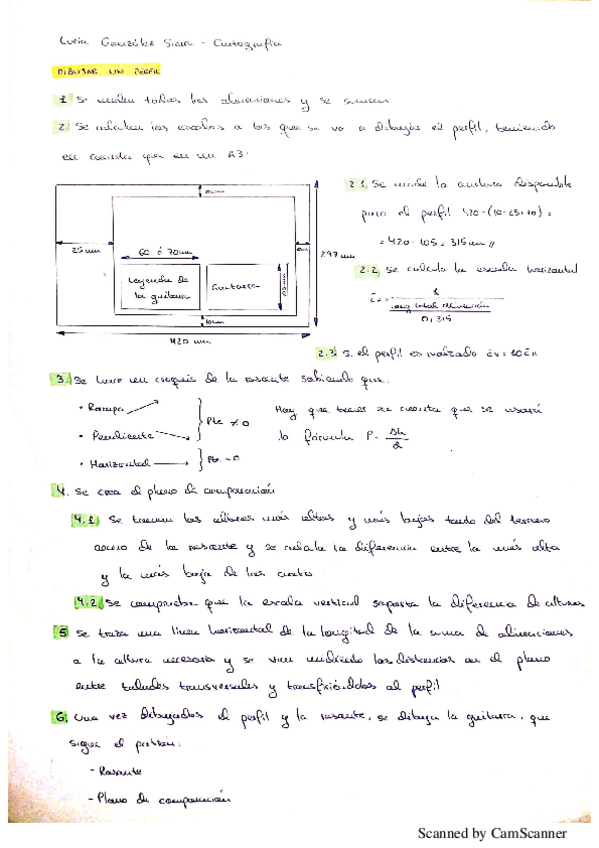 Lucía González Sierra - Cartografía
DIBUJAR UN PERFIL
1 Se miden todas las alineaciones y se suman
2. Se calculan las escalas a las que se va a dibujar el perfil, teniendo
en cuenta que en un A3:
10mm
25mm
60 ó 70mm
10mm
297mm
Leyenda de
la guitarra
Guitarra
10mm
420mm
2.1. Se mide la anchura disponible
para el perfil 420-(10-25-70) =
= 420-105 = 315mm //
2.2. Se calcula la escala horizontal
1
long total alineación
0,315
2.3. Si el perfil es realzado Ev = 10 En
3. Se hace un croquis de la rasante sabiendo que:
· Rampa
· Pendiente
· Horizontal
Pte ≠ 0
Pte = 0
Hay que tener en cuenta que se usará
la fórmula P = Δh
4. Se crea el plano de comparación
4.1. Se toman las alturas más altas y más bajas tanto del terreno
como de la rasante y se calcula la diferencia entre la más alta
y la más baja de las cuatro
4.2. Se comprueba que la escala vertical soporta la diferencia de alturas
5 Se traza una línea horizontal de la longitud de la suma de alineaciones
a la altura necesaria y se van midiendo las distancias en el plano
entre taludes transversales y transfiriéndolos al perfil
6. Una vez dibujados el perfil y la rasante, se dibuja la guitarra, que
sigue el patrón:
- Rasante
- Plano de comparación
Scanned by CamScanner